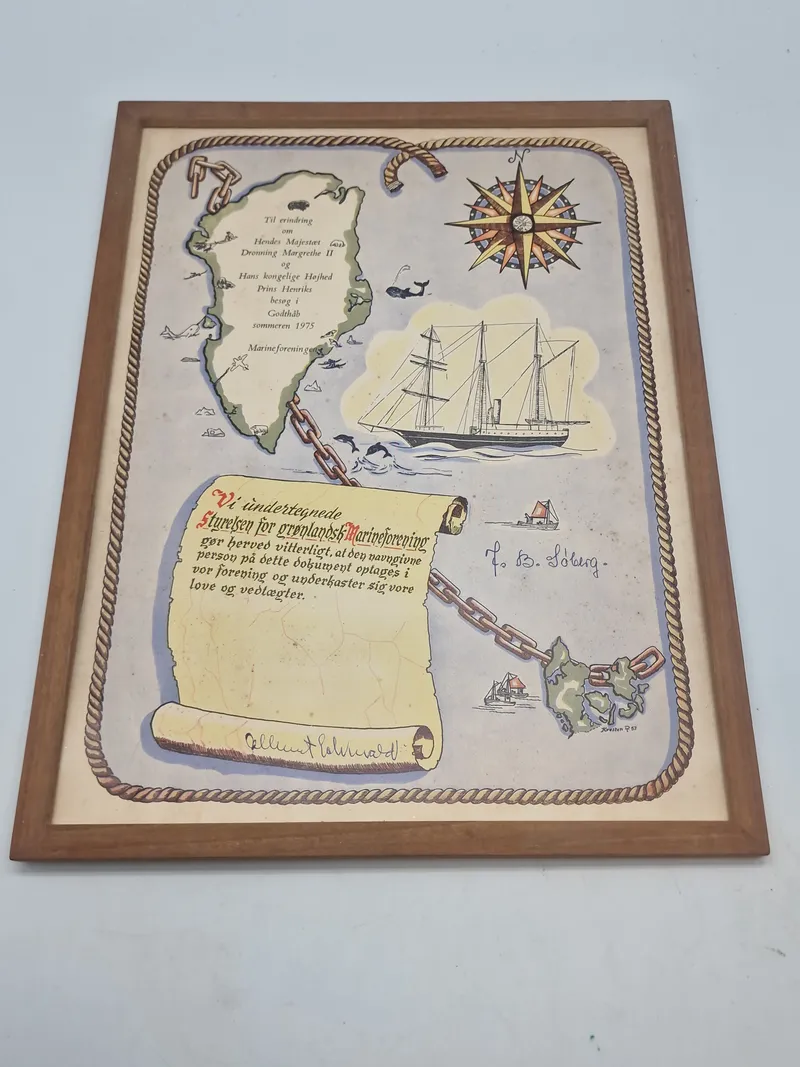 N
Til erindring
om
Hendes Majestæt
Dronning Margrethe II
og
Hans kongelige Højhed
Prins Henriks
besøg i
Godthåb
sommeren 1975
Marineforeningen
Vi undertegnede
Styrelsen for grønlandsk Marineforening
gør herved vitterligt, at den navngivne
person på dette dokument optages i
vor forening og underkaster sig vore
love og vedtægter.
J. B. Söberg.